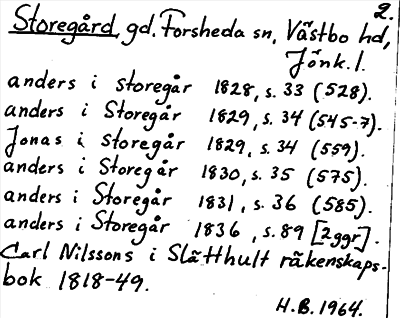 2.
Storegård, gd. Forsheda sn, Västbo hd,
Jönk. l.
anders i storegår 1828, s. 33 (528).
anders i Storegår 1829, s. 34 (545-7).
Jonas i storegår 1829, s. 34 (559).
anders i Storegår 1830, s. 35 (575).
anders i Storegår 1831, s. 36 (585).
anders i Storegår 1836, s. 89 [2 ggr].
Carl Nilssons i Slätthult räkenskaps-
bok 1818-49.
H.B. 1964.